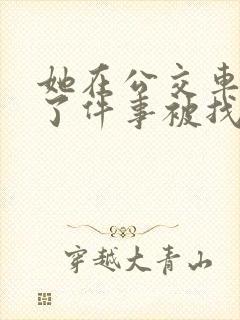 她在公交车
了件事被找
穿越大青山